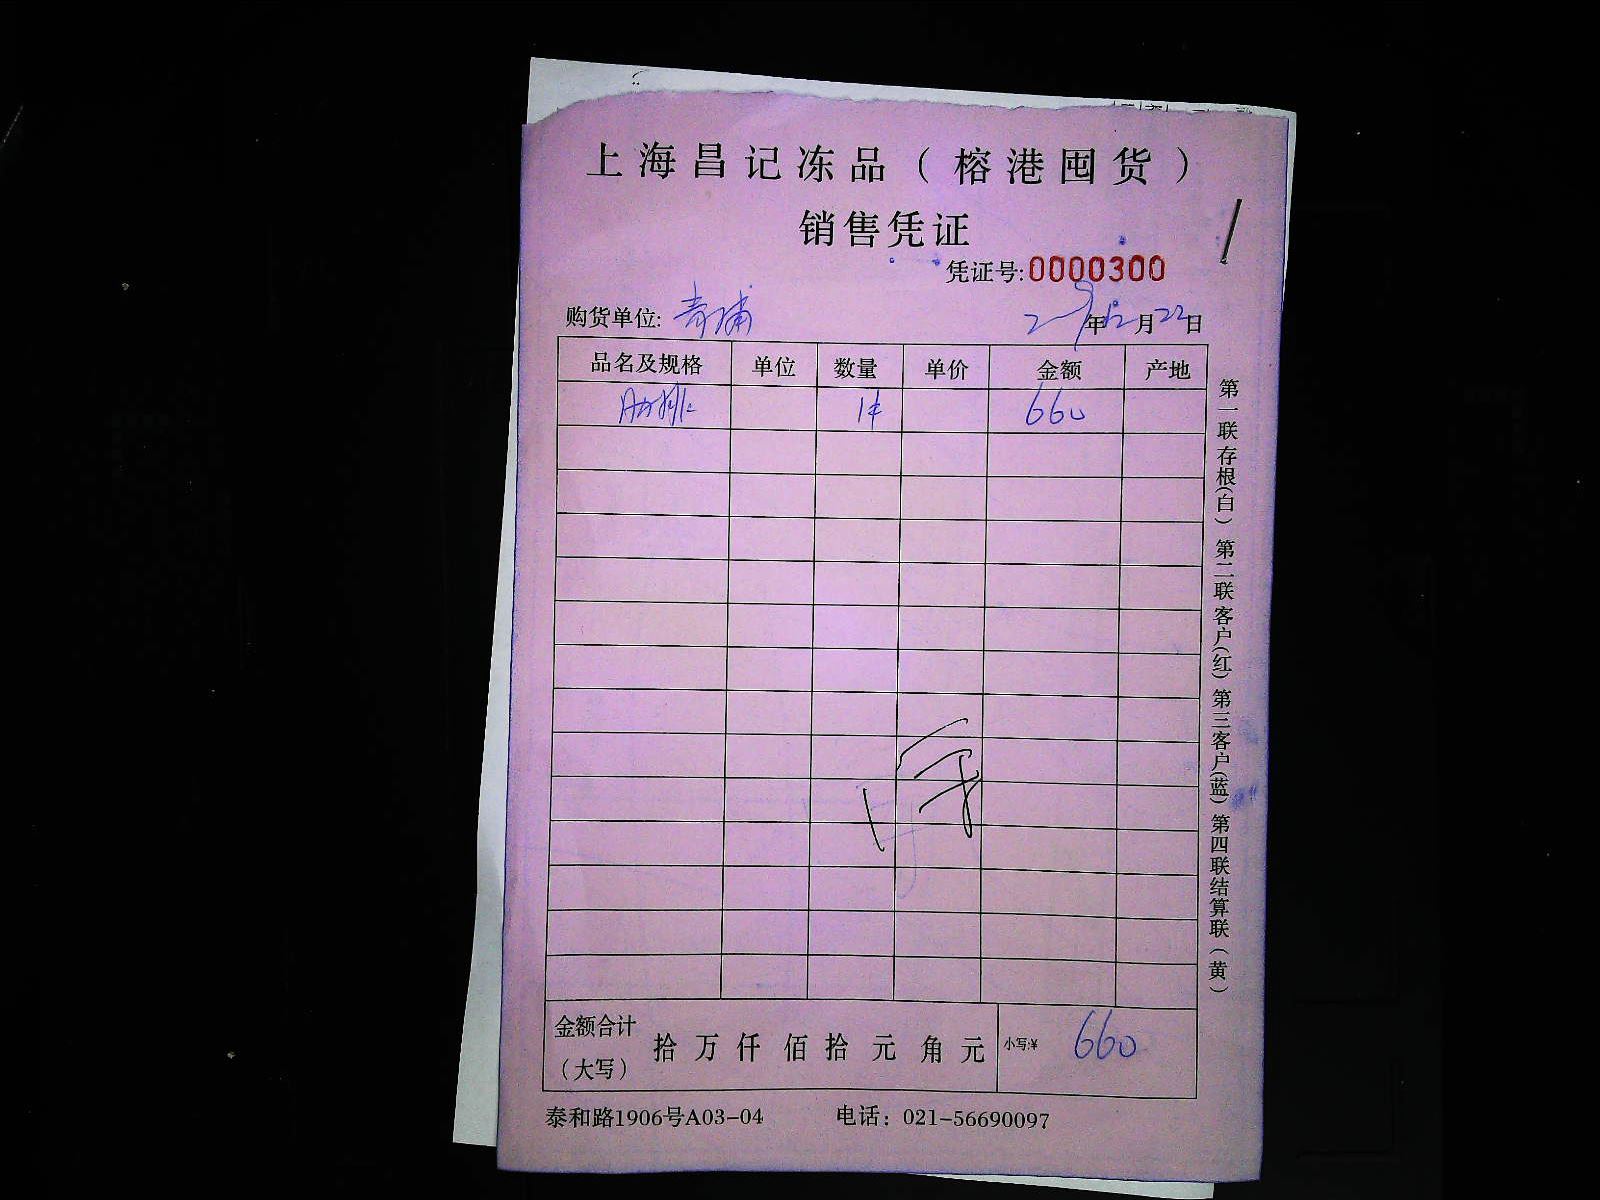 上海昌记冻品（榕港囤货）
销售凭证
凭证号:0000300
购货单位: 青浦
年12月22日
品名及规格 单位 数量 单价 金额 产地
1件 660
金额合计（大写） 拾 万 仟 佰 拾 元 角 元 小写:¥ 660
泰和路1906号A03-04 电话：021-56690097
第一联存根(白) 第二联客户(红) 第三客户(蓝) 第四联结算联(黄)